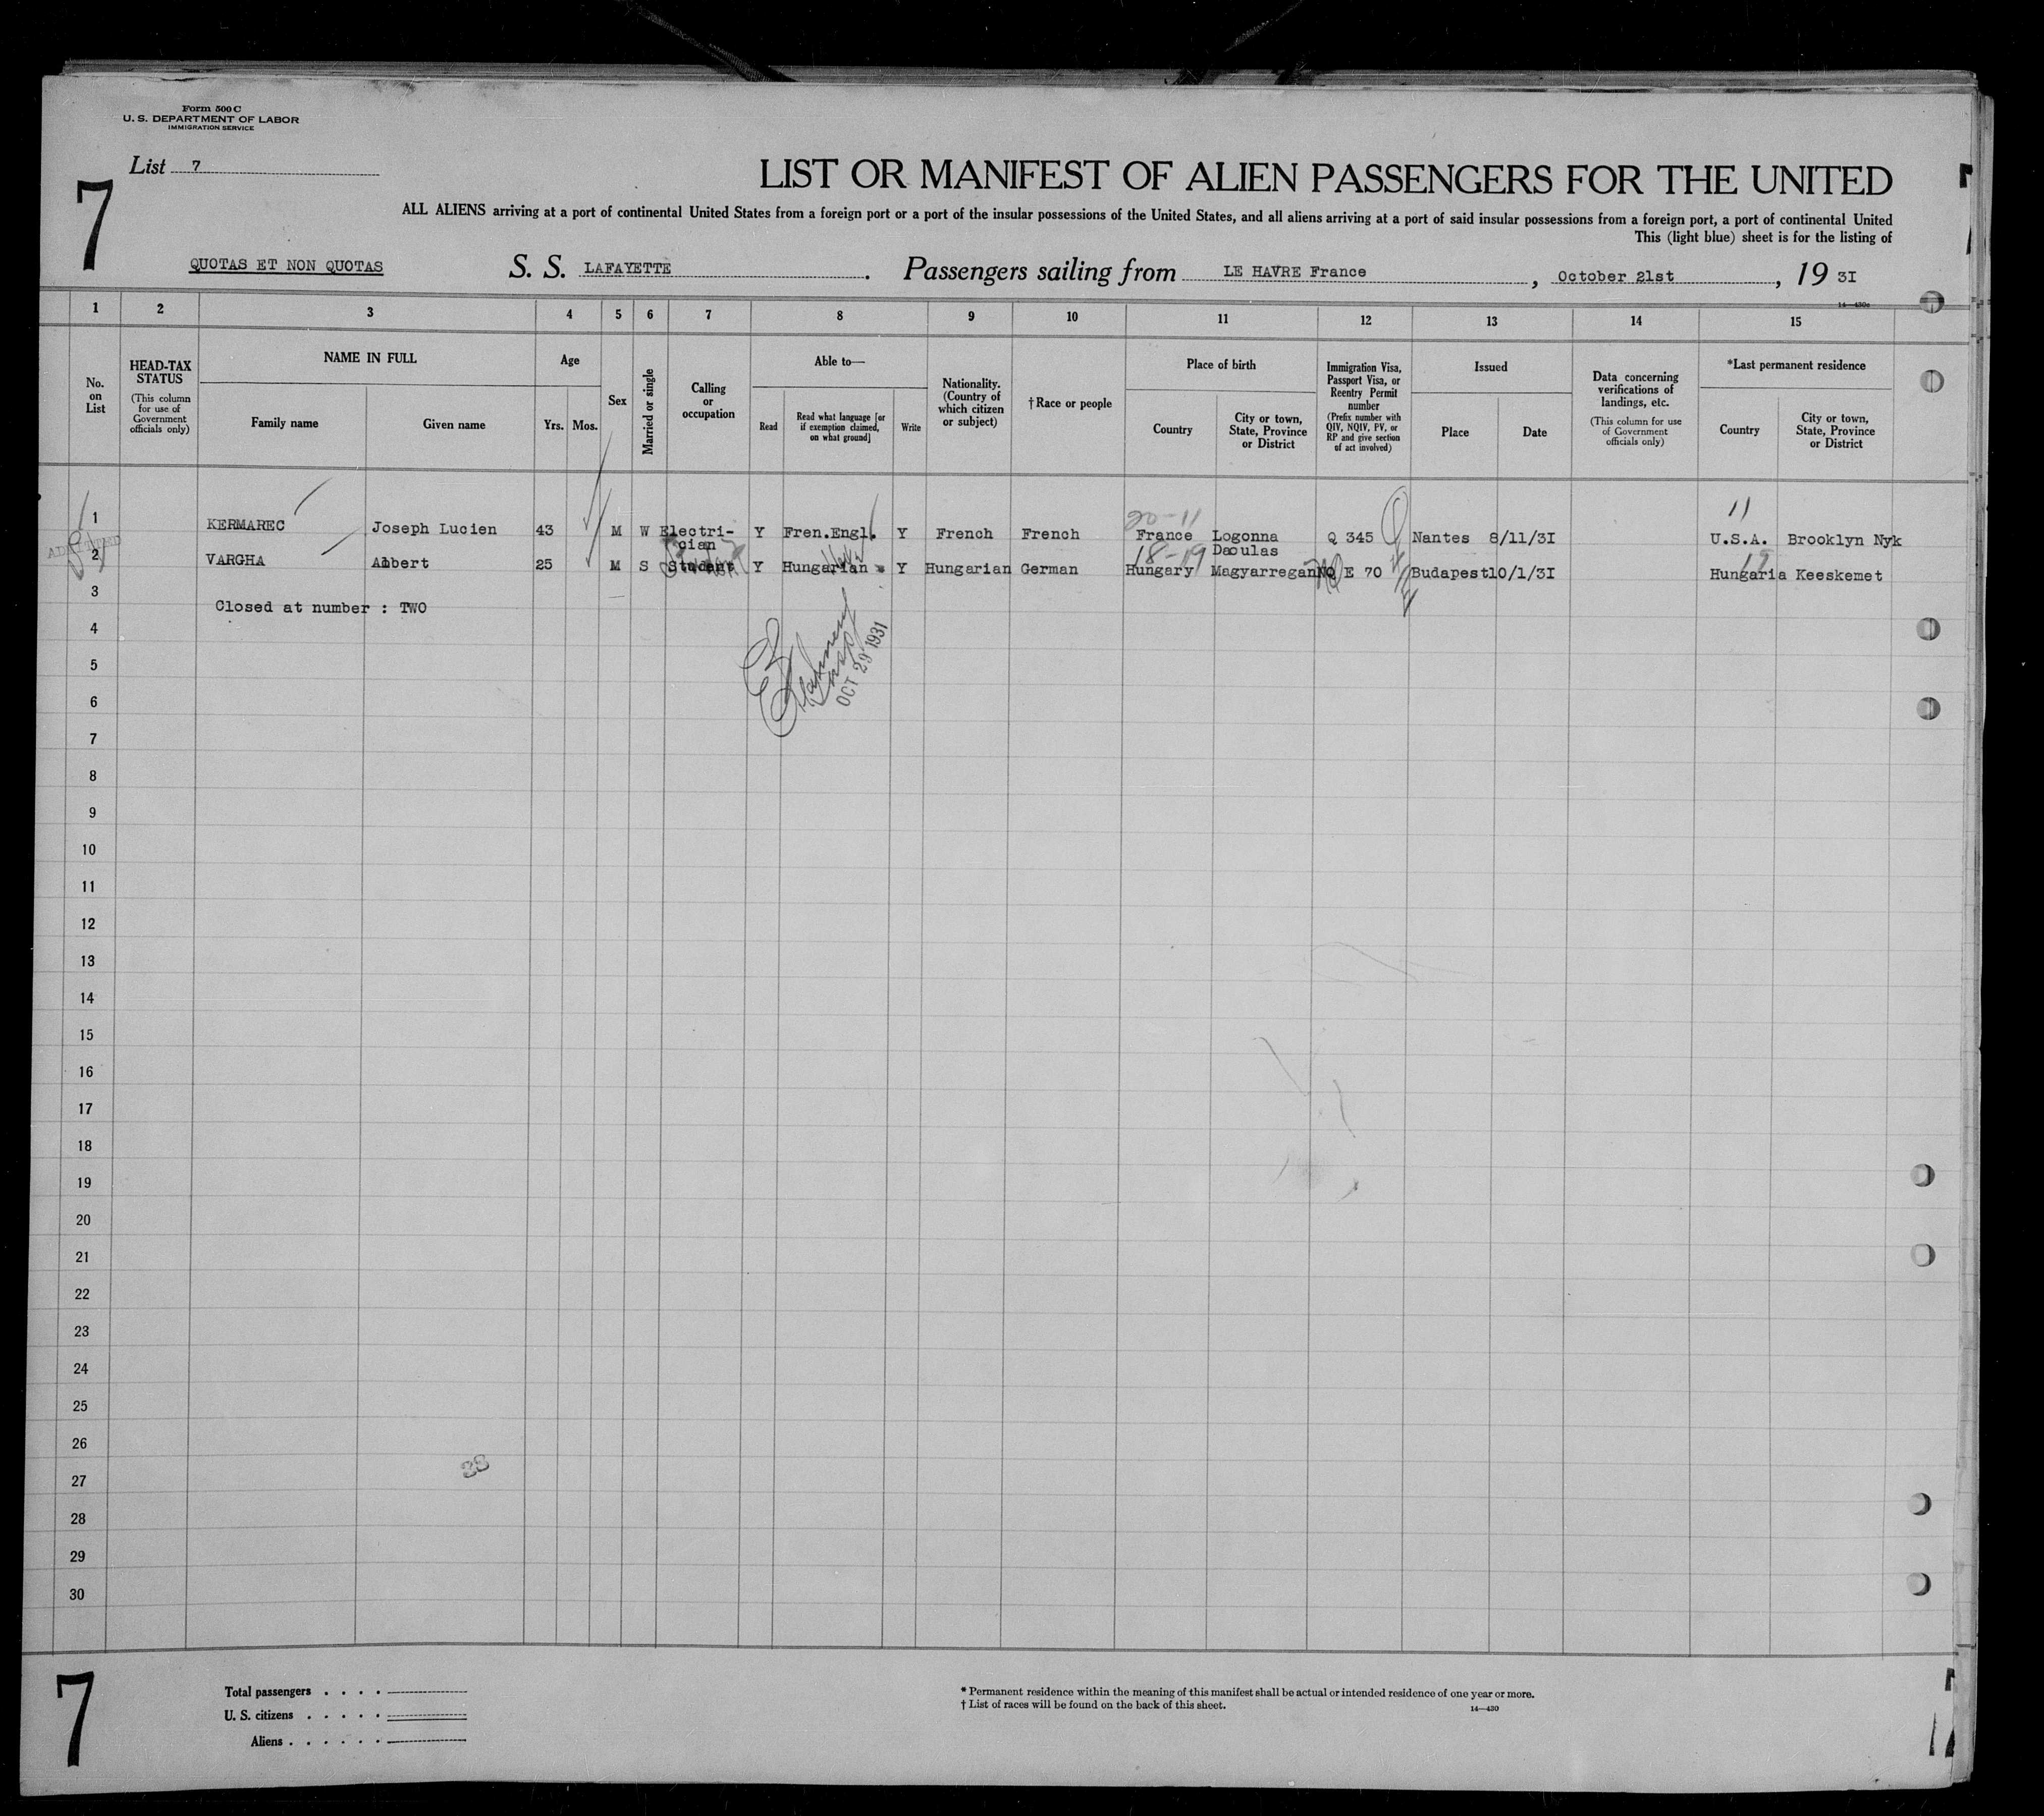 Form 500 C
U. S. DEPARTMENT OF LABOR
IMMIGRATION SERVICE
List 7
7
LIST OR MANIFEST OF ALIEN PASSENGERS FOR THE UNITED
ALL ALIENS arriving at a port of continental United States from a foreign port or a port of the insular possessions of the United States, and all aliens arriving at a port of said insular possessions from a foreign port, a port of continental United
This (light blue) sheet is for the listing of
QUOTAS ET NON QUOTAS S. S. LAFAYETTE. Passengers sailing from LE HAVRE France, October 21st, 19 3I
14—430c
1 2 3 4 5 6 7 8 9 10 11 12 13 14 15
No. on List
HEAD-TAX STATUS
(This column for use of Government officials only)
NAME IN FULL
Family name Given name
Age
Yrs. Mos.
Sex
Married or single
Calling or occupation
Able to—
Read Read what language [or if exemption claimed, on what ground] Write
Nationality. (Country of which citizen or subject)
†Race or people
Place of birth
Country City or town, State, Province or District
Immigration Visa, Passport Visa, or Reentry Permit number
(Prefix number with QIV, NQIV, PV, or RP and give section of act involved)
Issued
Place Date
Data concerning verifications of landings, etc.
(This column for use of Government officials only)
*Last permanent residence
Country City or town, State, Province or District
20-11 11
1 KERMAREC Joseph Lucien 43 M W Electri- Y Fren.Engl. Y French French France Logonna Q 345 Nantes 8/11/3I U.S.A. Brooklyn Nyk
cian Daoulas
ADMITTED
18-19 19
2 VARGHA Albert 25 M S Student Y Hungarian Y Hungarian German Hungary Magyarregen NQ E 70 Budapest 10/1/3I Hungaria Keeskemet
3
Closed at number : TWO
4
5
OCT 29 1931
6
7
8
9
10
11
12
13
14
15
16
17
18
19
20
21
22
23
24
25
26
38
27
28
29
30
7
Total passengers . . . .
U. S. citizens . . . . .
Aliens . . . . . .
* Permanent residence within the meaning of this manifest shall be actual or intended residence of one year or more.
† List of races will be found on the back of this sheet.
14—430